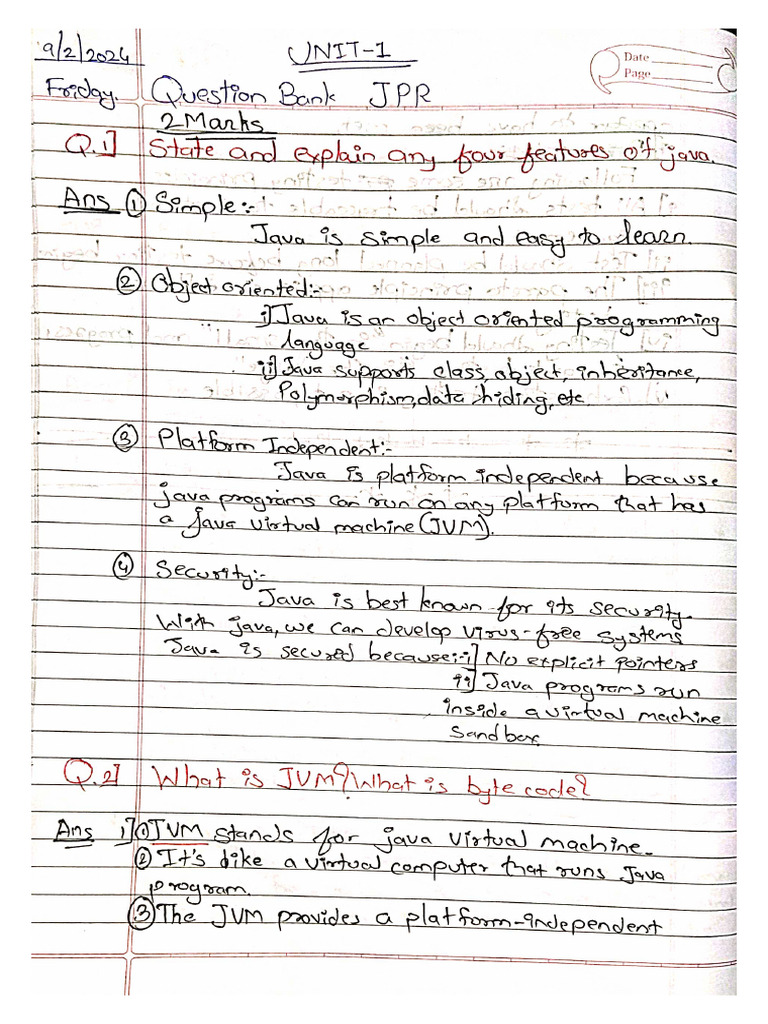 9/2/2024
UNIT-1
Date
Page
Friday.
Question Bank JPR
2 Marks
Q.1] State and explain any four features of java.
Ans ① Simple:-
Java is simple and easy to learn.
② Object oriented:-
i] Java is an object oriented programming
language
ii] Java supports class, object, inheritance,
Polymorphism, data hiding, etc.
③ Platform Independent:-
Java is platform independent because
java programs can run on any platform that has
a java virtual machine (JVM).
④ Security:-
Java is best known for its security.
With java, we can develop virus-free systems
Java is secured because:- i] No explicit pointers
ii] Java programs run
inside a virtual machine
sandbox.
Q.2] What is JVM? What is byte code?
Ans 1] ① JVM stands for java virtual machine.
② It's like a virtual computer that runs Java
program.
③ The JVM provides a platform-independent